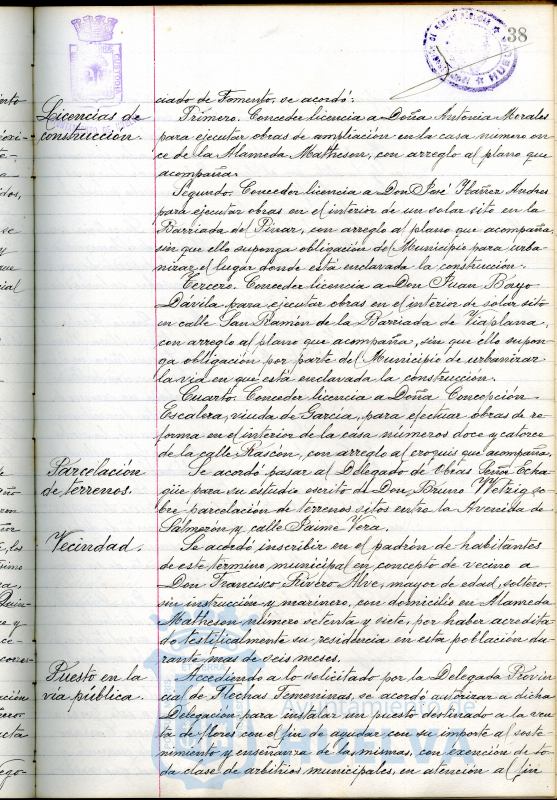 38
Licencias de
construcción.
ciado de Fomento, se acordó:
Primero. Conceder licencia a Doña Antonia Morales
para ejecutar obras de ampliación en la casa número on-
ce de la Alameda Matheson, con arreglo al plano que
acompaña.
Segundo. Conceder licencia a Don José Ibáñez Andres
para ejecutar obras en el interior de un solar sito en la
Barriada del Pinar, con arreglo al plano que acompaña
sin que ello suponga obligación del Municipio para urba-
nizar el lugar donde está enclavada la construcción.
Tercero. Conceder licencia a Don Juan Bayo
Dávila para ejecutar obras en el interior de solar sito
en calle San Ramón de la Barriada de Viaplana,
con arreglo al plano que acompaña, sin que ello supon-
ga obligación por parte del Municipio de urbanizar
la via en que está enclavada la construcción.
Cuarto. Conceder licencia a Doña Concepción
Escalera, viuda de Garcia, para efectuar obras de re-
forma en el interior de la casa números doce y catorce
de la calle Rascón, con arreglo al croquis que acompaña.
Parcelación
de terrenos.
Se acordó pasar al Delegado de Obras Señor Echa-
güe para su estudio escrito de Don Bruno Wetzig so-
bre parcelación de terrenos sitos entre la Avenida de
Salmerón y calle Jaime Vera.
Vecindad.
Se acordó inscribir en el padrón de habitantes
de este término municipal en concepto de vecino a
Don Francisco Rivero Alve, mayor de edad, soltero,
sin instrucción y marinero, con domicilio en Alameda
Matheson número setenta y siete, por haber acredita-
do testificalmente su residencia en esta población du-
rante mas de seis meses.
Puesto en la
via pública.
Accediendo a lo solicitado por la Delegada Provin-
cial de Flechas Femeninas, se acordó autorizar a dicha
Delegación para instalar un puesto destinado a la ven-
ta de flores con el fin de ayudar con su importe al soste-
nimiento y enseñanza de la mismas, con exención de to-
da clase de arbitrios municipales, en atención al fin
Ayuntamiento de
HUELVA